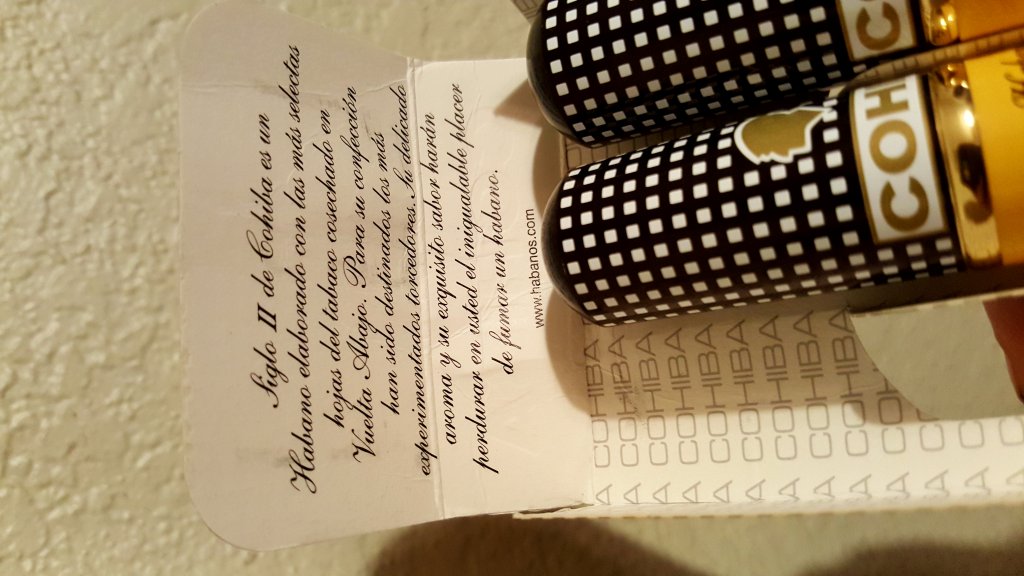 Siglo II de Cohiba es un
Habano elaborado con las más selectas
hojas del tabaco cosechado en
Vuelta Abajo. Para su confección
han sido destinados los más
experimentados torcedores. Su delicado
aroma y su exquisito sabor harán
perdurar en usted el inigualable placer
de fumar un habano.
www.habanos.com
CO
COH
COHIBA
COHIBA
COHIBA
COHIBA
COHIBA
COHIBA
COHIBA
COHIBA
COHIBA